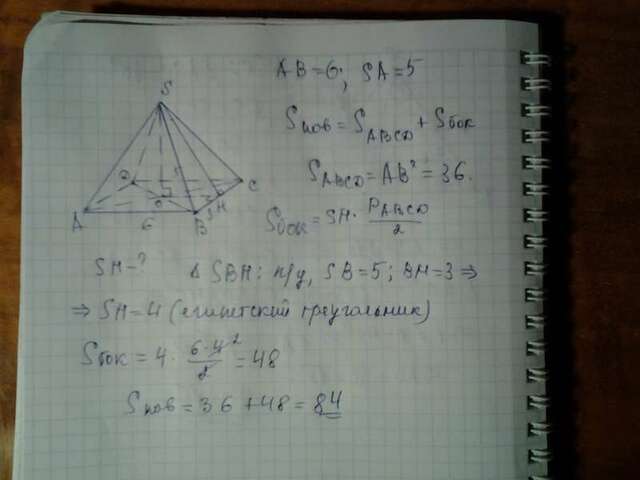 AB = 6; SA = 5
S
Sпов = S_ABCD + Sбок
S_ABCD = AB² = 36.
Sбок = SH · P_ABCD / 2
D
C
A
6
O
B
3
H
SH - ? Δ SBH: п/у, SB = 5; BH = 3 ⇒
⇒ SH = 4 (египетский треугольник)
Sбок = 4 · 6·4² / 2 = 48
Sпов = 36 + 48 = 84